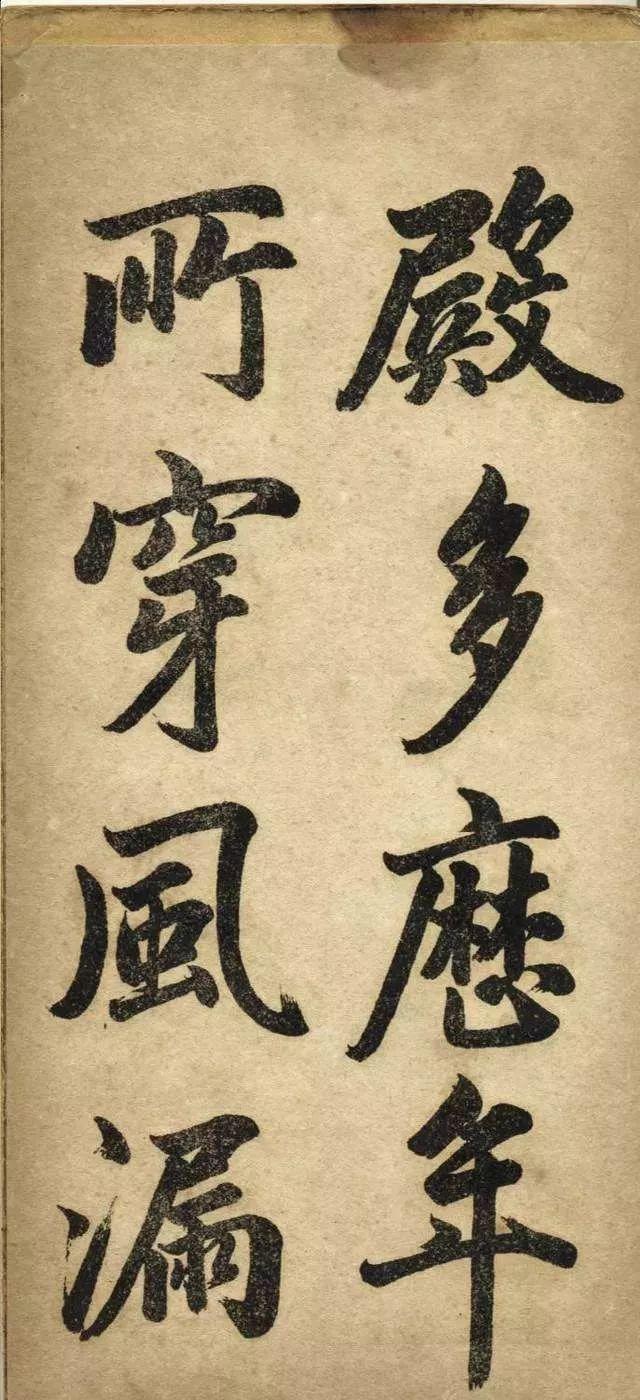 殿多歷年
所穿風漏